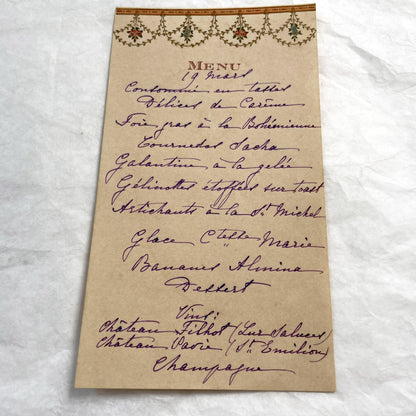 MENU
19 mars
Consommé en tasses
Délices de Carême
Foie gras à la Bohémienne
Tournedos Sacha
Galantine à la gelée
Gélinottes étoffées sur toast
Artichauts à la St Michel
Glace Ctesse Marie
Bananes Almina
Dessert
Vins:
Château Filhot (Lur Saluces)
Château Pavie (St Emilion)
Champagne